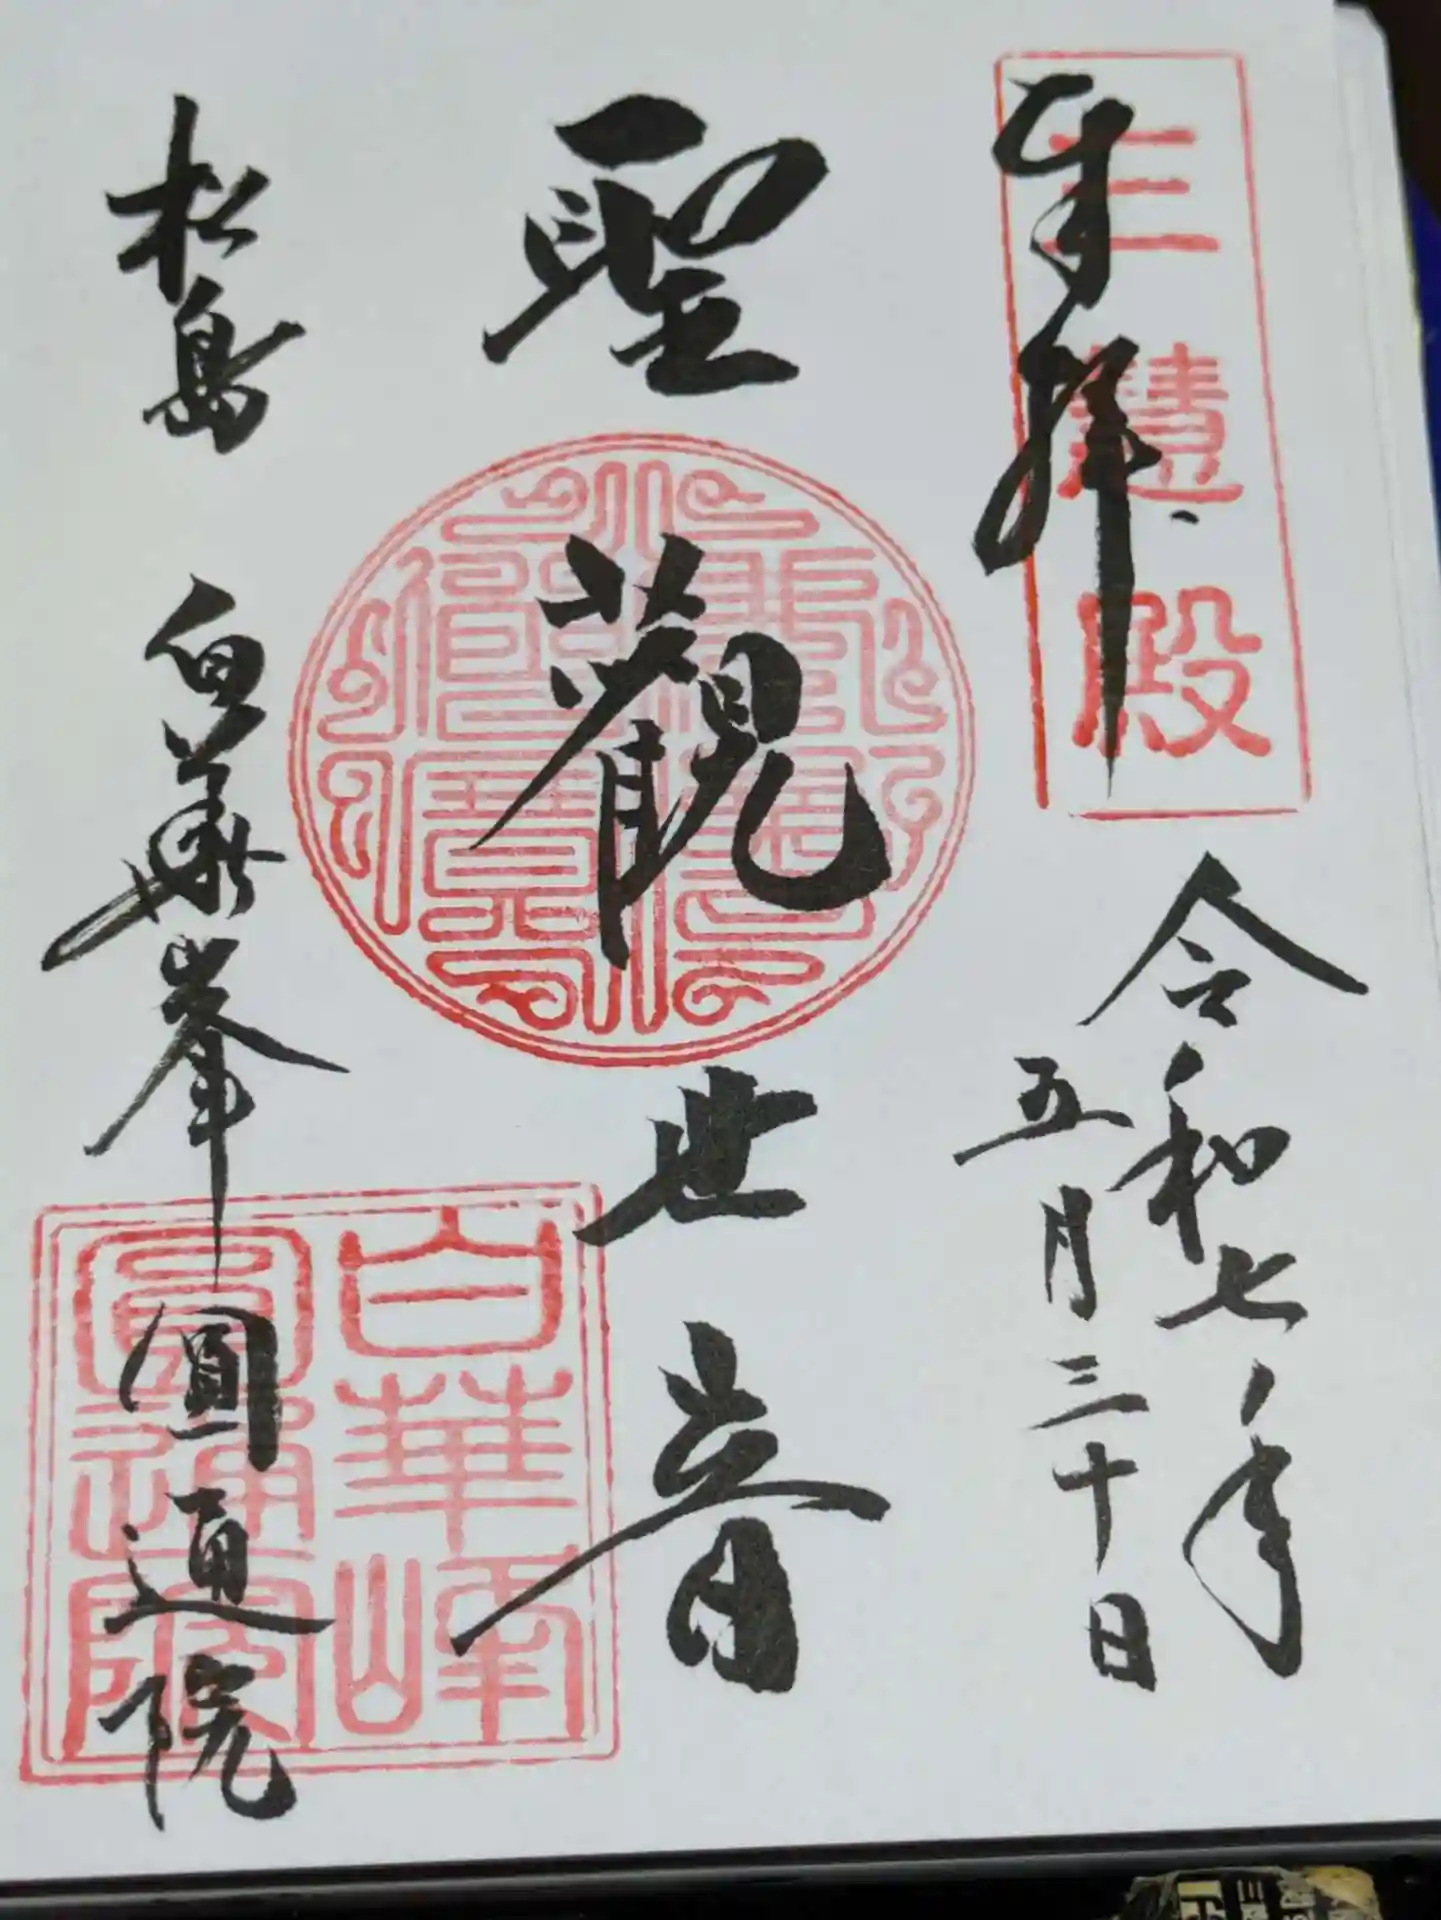 奉拝
三慧殿
令和七年
五月三十日
聖觀世音
松島 白華峯圓通院
白華峰
圓通院